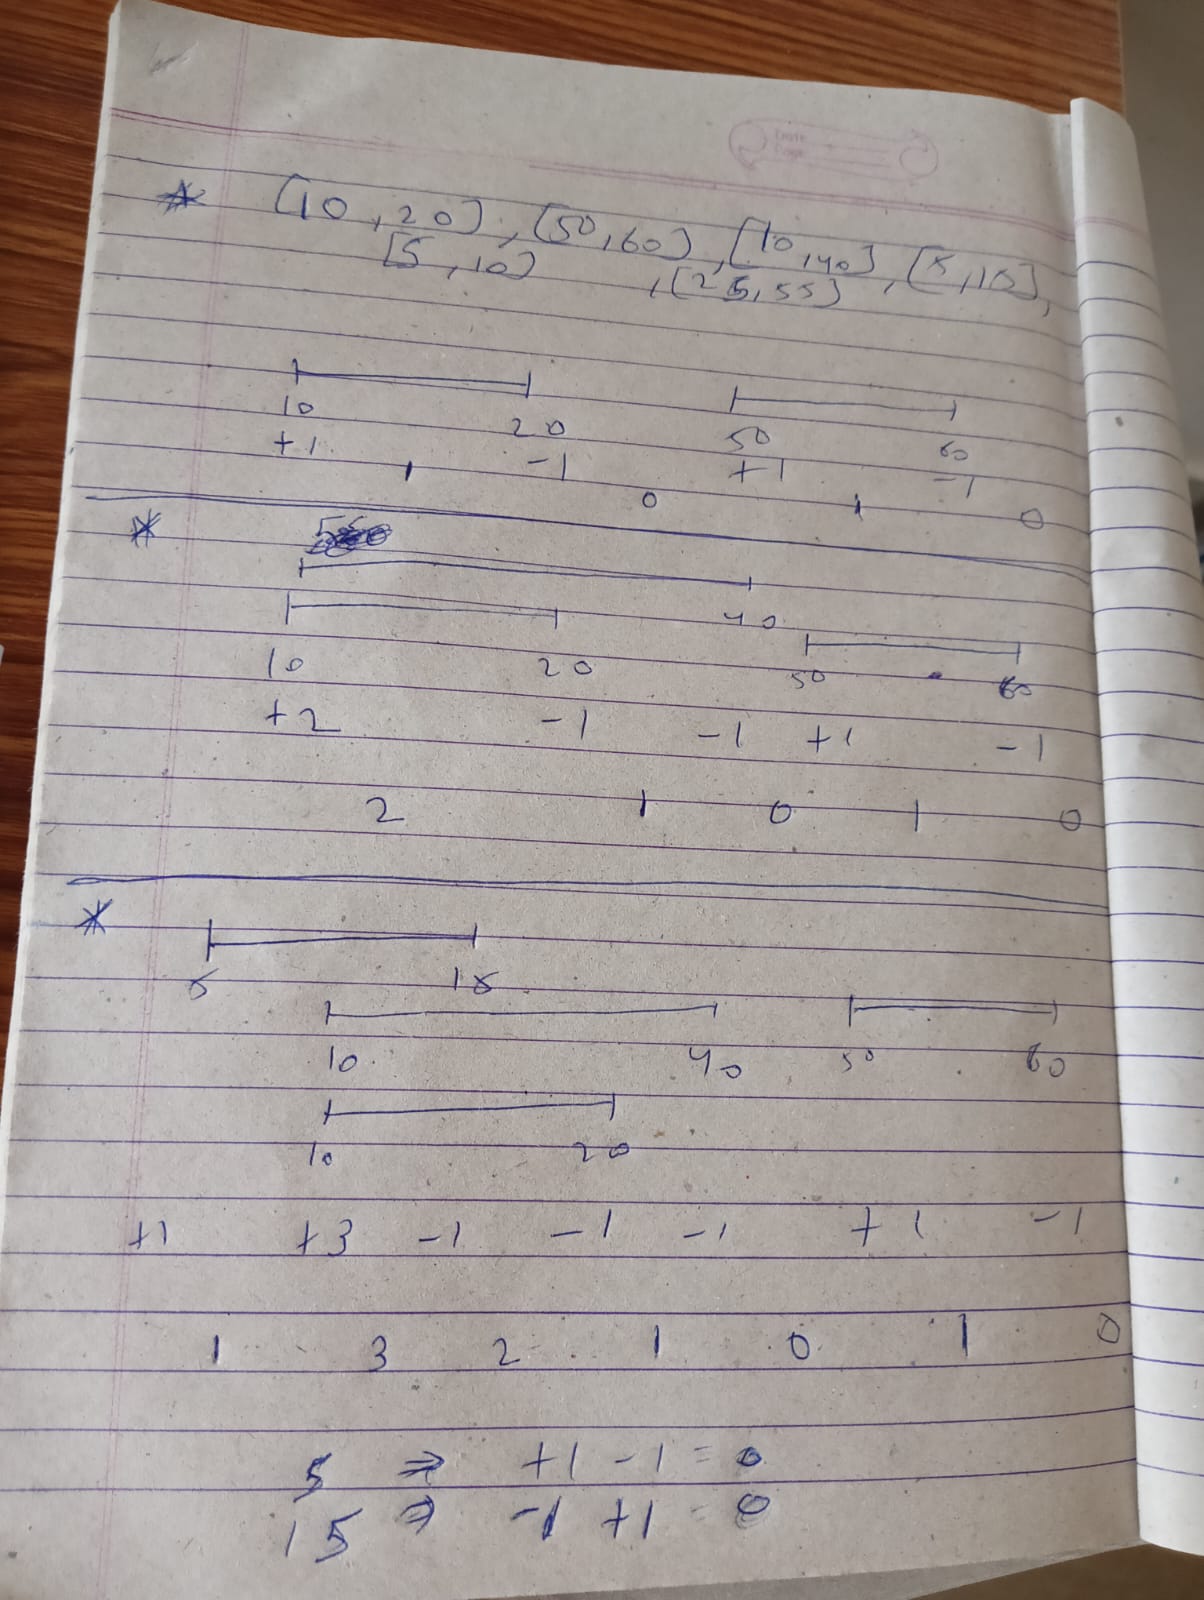 * [10, 20], [50,60], [10,40], [5,15],
[5,10] , [25,55]
10 20 50 60
+1 -1 +1 -1
1 0 1 0
*
40
10 20 50 60
+2 -1 -1 +1 -1
2 1 0 1 0
*
5 15
10 40 50 60
10 20
+1 +3 -1 -1 -1 +1 -1
1 3 2 1 0 1 0
5 ⇒ +1 -1 = 0
15 ⇒ -1 +1 = 0